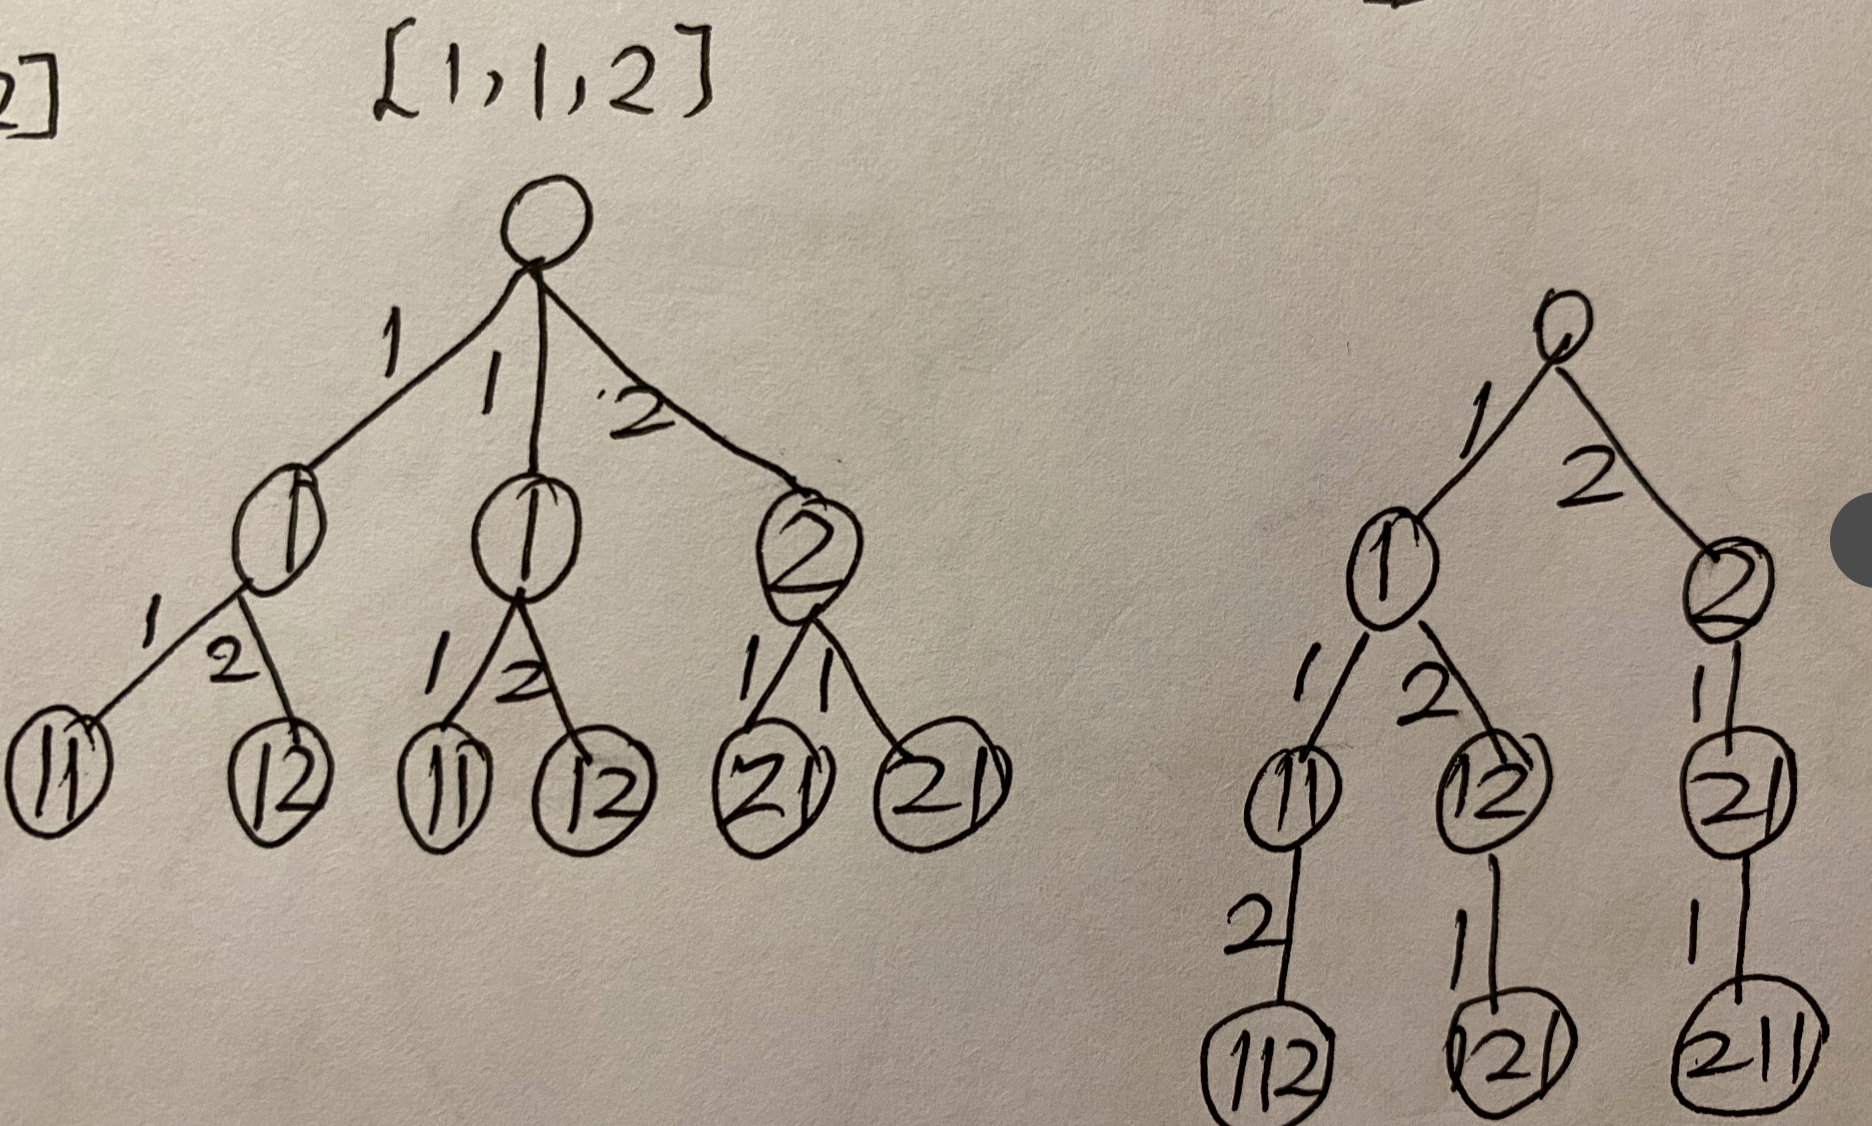 2]
[1,1,2]
1 1 2
1 1 2
1 2 1 2 1 1
11 12 11 12 21 21
1 2
1 2
1 2 1
11 12 21
2 1 1
112 121 211